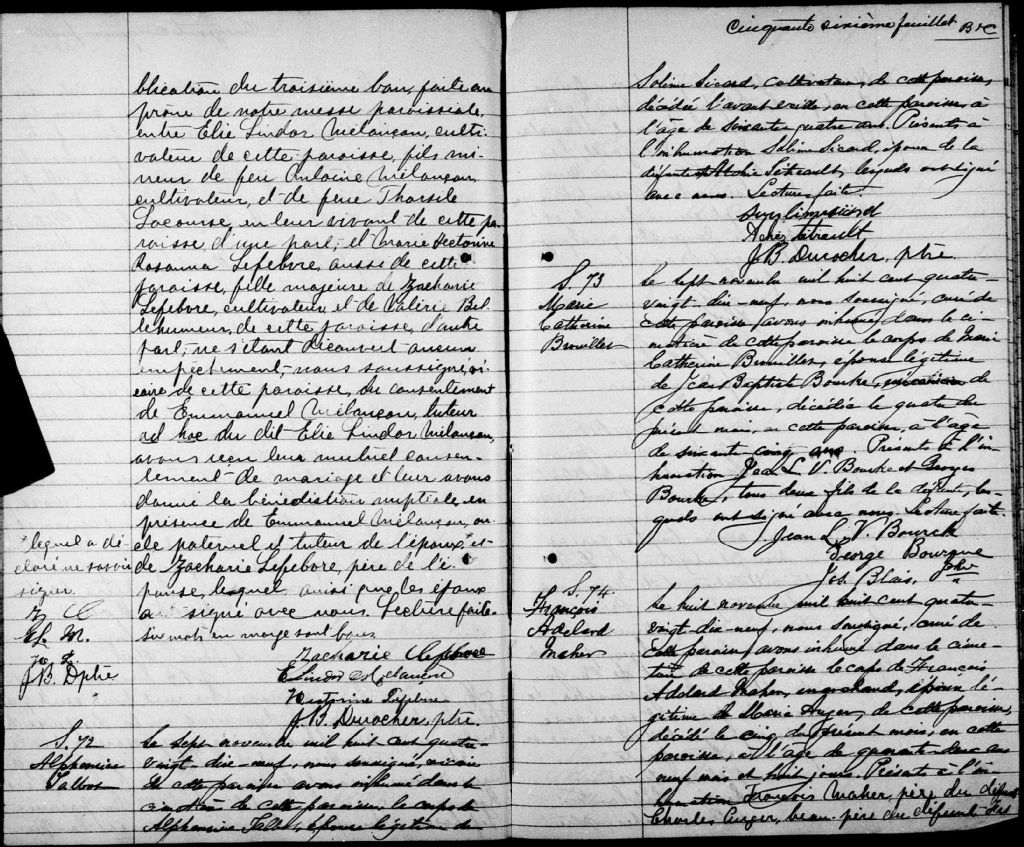 blication du troisième ban, faite au
prône de notre messe paroissiale,
entre Elie Lindor Mélançon, culti-
vateur de cette paroisse, fils mi-
neur de feu Antoine Mélançon,
cultivateur, et de feue Tharsile
Lacourse, en leur vivant de cette pa-
roisse d'une part, et Marie Hectorine
Rosanna Lefebvre, aussi de cette
paroisse, fille majeure de Zacharie
Lefebvre, cultivateur, et de Valérie Bel-
lehumeur, de cette paroisse, d'autre
part, ne s'étant découvert aucun
empêchement, nous soussigné, vi-
caire de cette paroisse, du consentement
de Emmanuel Mélançon, tuteur
ad hoc du dit Elie Lindor Mélançon,
avons reçu leur mutuel consen-
tement de mariage et leur avons
donné la bénédiction nuptiale, en
présence de Emmanuel Mélançon, on-
cle paternel et tuteur de l'époux* et
de Zacharie Lefebvre, père de l'é-
pouse, lequel ainsi que les époux
a signé avec nous. Lecture faite.
six mots en marge sont bons
*lequel a dé-
claré ne savoir
signer.
Z L
E L M.
J.B. D ptre
Zacharie Lefebvre
E Lindor Melancon
Hectorine Lefebvre
J. B. Durocher, ptre.
S. 72
Alphonsine
Talbot
Le sept novembre mil huit cent quatre-
vingt-dix-neuf, nous soussigné, vicaire
de cette paroisse avons inhumé dans le
cimetière de cette paroisse, le corps de
Alphonsine Talbot, épouse légitime de
Cinquante sixième feuillet
Solime Sicard, cultivateur, de cette paroisse,
décédée l'avant veille, en cette paroisse, à
l'âge de soixante quatre ans. Présents à
l'inhumation Solime Sicard, époux de la
défunte et Tétreault, lesquels ont signé
avec nous. Lecture faite.
sicard
tétrault
J. B. Durocher, ptre.
S. 73
Marie
Catherine
Brouillet
Le sept novembre mil huit cent quatre-
vingt-dix-neuf, nous soussigné, curé de
cette paroisse avons inhumé dans le ci-
metière de cette paroisse le corps de Marie
Catherine Brouillet, épouse légitime
de Jean Baptiste Bourke, de
cette paroisse, décédée le quatre du
présent mois, en cette paroisse, à l'âge
de soixante cinq ans. Présents à l'in-
humation Jean L. V. Bourke et Georges
Bourke, tous deux fils de la défunte, les-
quels ont signé avec nous. Lecture faite.
Jean L. V. Bourck
George Bourque
Jos. Blais, ptre
S. 74
François
Adelard
Maher
Le huit novembre mil huit cent quatre-
vingt-dix-neuf, nous soussigné, curé de
cette paroisse, avons inhumé dans le cime-
tière de cette paroisse le corps de François
Adelard Maher, marchand, époux lé-
gitime de Marie Auger, de cette paroisse,
décédé le cinq du présent mois, en cette
paroisse, à l'âge de quarante deux ans
neuf mois et huit jours. Présents à l'in-
humation François Maher, père du défunt
Charles Auger, beau-père du défunt